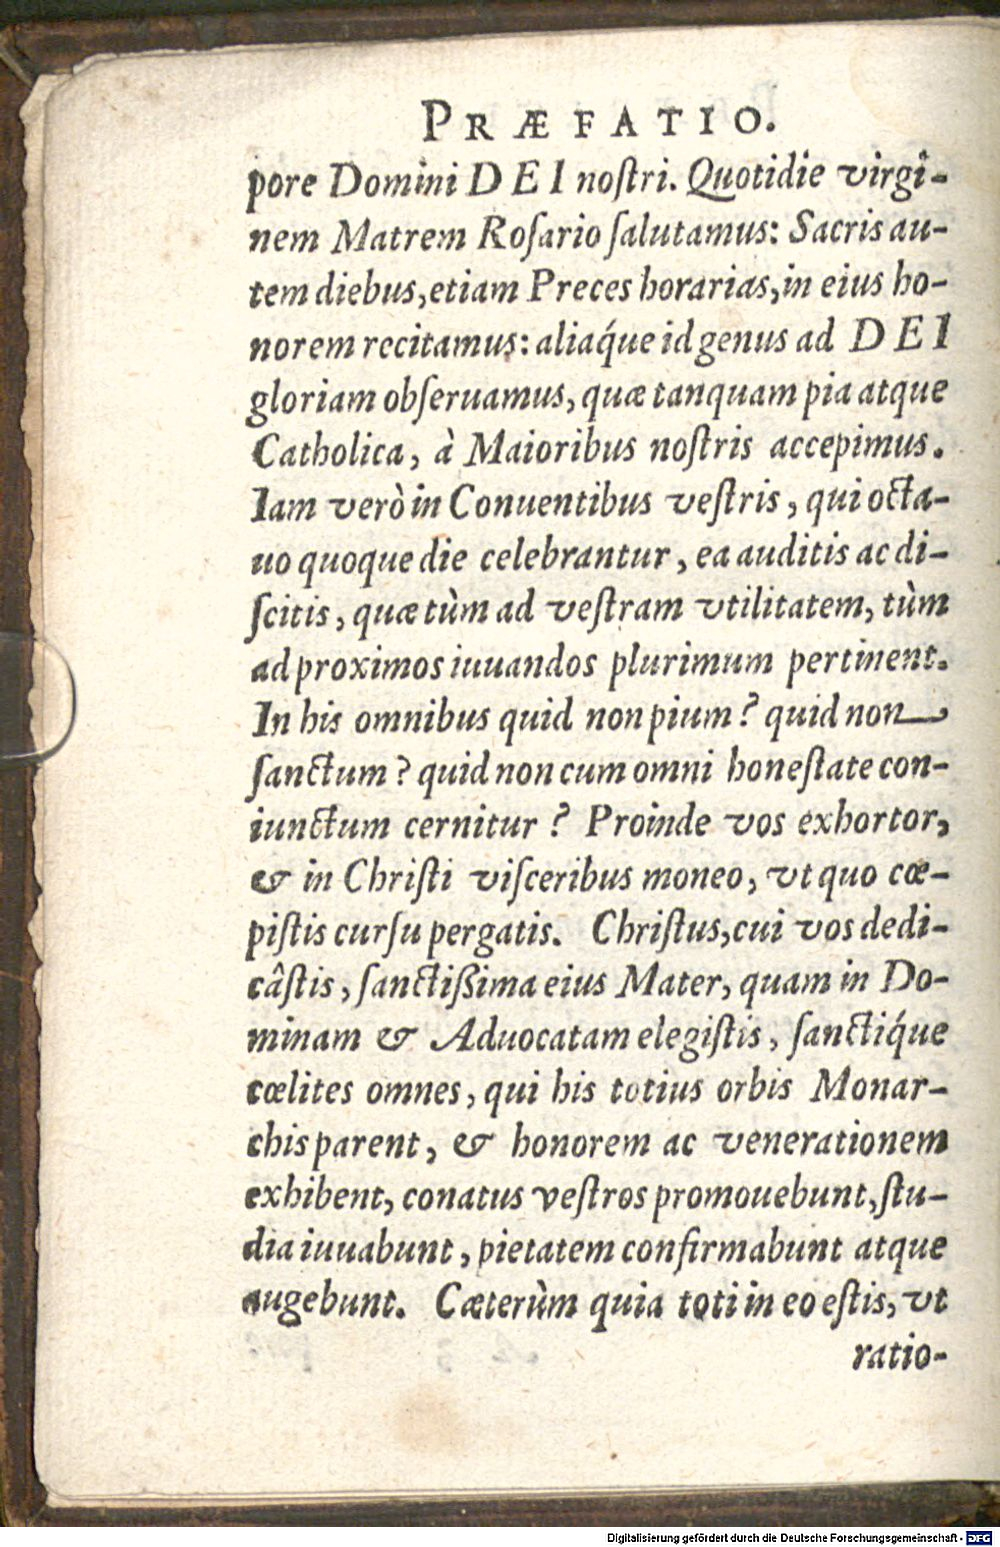 PRÆFATIO.
pore Domini DEI noſtri. Quotidie virgi-
nem Matrem Roſario ſalutamus: Sacris au-
tem diebus, etiam Preces horarias, in eius ho-
norem recitamus: aliaq́ue id genus ad DEI
gloriam obſeruamus, quæ tanquam pia atque
Catholica, à Maioribus noſtris accepimus.
Iam verò in Conuentibus veſtris, qui octa-
uo quoque die celebrantur, ea auditis ac di-
ſcitis, quæ tùm ad veſtram vtilitatem, tùm
ad proximos iuuandos plurimum pertinent.
In his omnibus quid non pium? quid non
ſanctum? quid non cum omni honeſtate con-
iunctum cernitur? Proinde vos exhortor,
& in Chriſti viſceribus moneo, vt quo cœ-
piſtis curſu pergatis. Chriſtus, cui vos dedi-
câſtis, ſanctißima eius Mater, quam in Do-
minam & Aduocatam elegiſtis, ſanctiq́ue
cœlites omnes, qui his totius orbis Monar-
chis parent, & honorem ac venerationem
exhibent, conatus veſtros promouebunt, ſtu-
dia iuuabunt, pietatem confirmabunt atque
augebunt. Cæterùm quia toti in eo eſtis, vt
ratio-
Digitalisierung gefördert durch die Deutsche Forschungsgemeinschaft - DFG